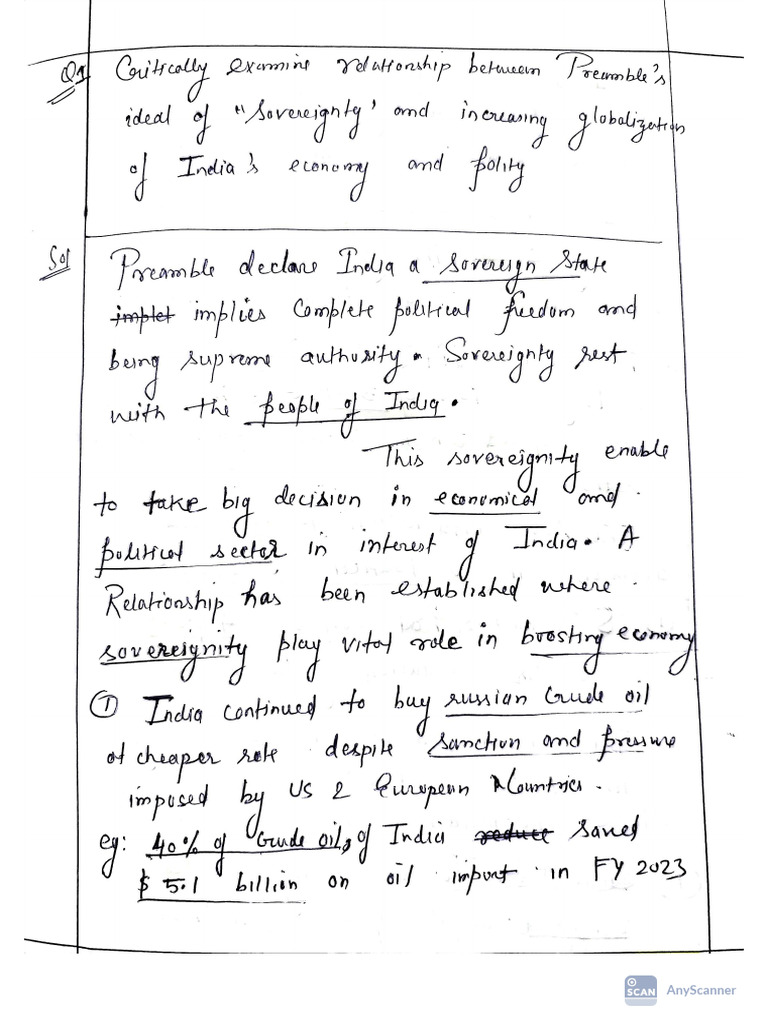 Q1 Critically examine relationship between Preamble's
ideal of "Sovereignty' and increasing globalization
of India's economy and polity
Sol Preamble declare India a sovereign State
implet implies complete political freedom and
being supreme authority. Sovereignty rest
with the people of India.
This sovereignity enable
to take big decision in economical and
political sector in interest of India. A
Relationship has been established where
sovereignity play vital role in boosting economy
① India continued to buy russian Crude oil
at cheaper rate despite sanction and pressure
imposed by US & European Countries.
eg: 40% of Crude oil, of India reduce saved
$ 5.1 billion on oil import in FY 2023
SCAN AnyScanner